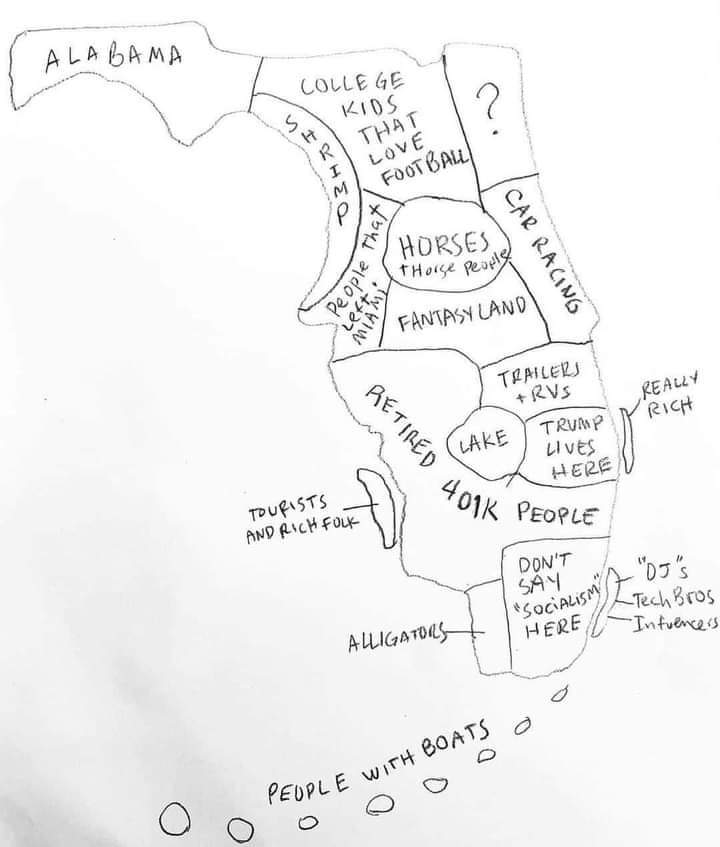 ALABAMA
COLLEGE
KIDS
THAT
LOVE
FOOTBALL
?
SHRIMP
CAR RACING
People That
Left
MIAMI
HORSES
+ Horse People
FANTASY LAND
TRAILERS
+ RVS
REALLY
RICH
RETIRED
401K PEOPLE
LAKE
TRUMP
LIVES
HERE
TOURISTS
AND RICH FOLK
DON'T
SAY
"SOCIALISM"
HERE
"DJ"s
Tech Bros
Infuencers
ALLIGATORS
PEOPLE WITH BOATS